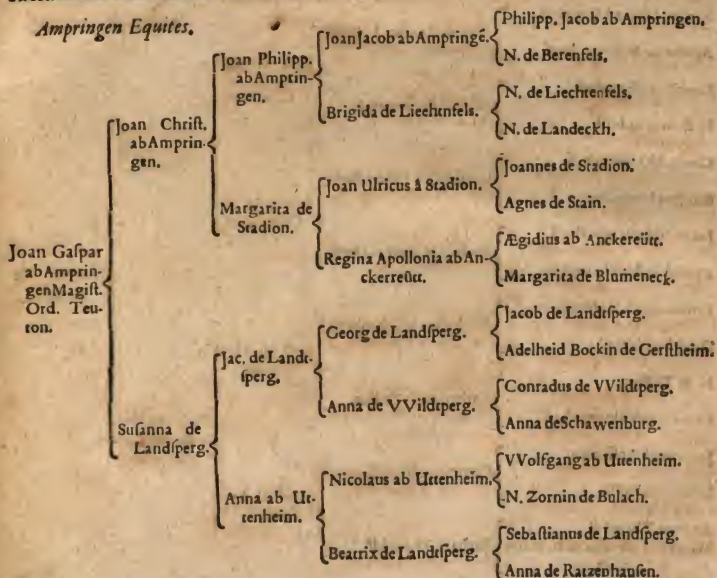 Ampringen Equites.
Joan Gaſpar
ab Amprin-
gen Magiſt.
Ord. Teu-
ton.
Joan Chriſt.
ab Amprin-
gen.
Suſanna de
Landſperg.
Joan Philipp.
ab Amprin-
gen.
Margarita de
Stadion.
Jac. de Landt-
ſperg.
Anna ab Ut-
tenheim.
Joan Jacob ab Ampringē.
Brigida de Liechtenfels.
Joan Ulricus â Stadion.
Regina Apollonia ab An-
ckerreütt.
Georg de Landſperg.
Anna de VVildtperg.
Nicolaus ab Uttenheim.
Beatrix de Landtſperg.
Philipp. Jacob ab Ampringen.
N. de Berenfels.
N. de Liechtenfels.
N. de Landeckh.
Joannes de Stadion.
Agnes de Stain.
Ægidius ab Anckereütt.
Margarita de Blumeneck.
Jacob de Landtſperg.
Adelheid Bockin de Gerſtheim.
Conradus de VVildtperg.
Anna de Schawenburg.
VVolfgang ab Uttenheim.
N. Zornin de Bulach.
Sebaſtianus de Landſperg.
Anna de Ratzenhauſen.